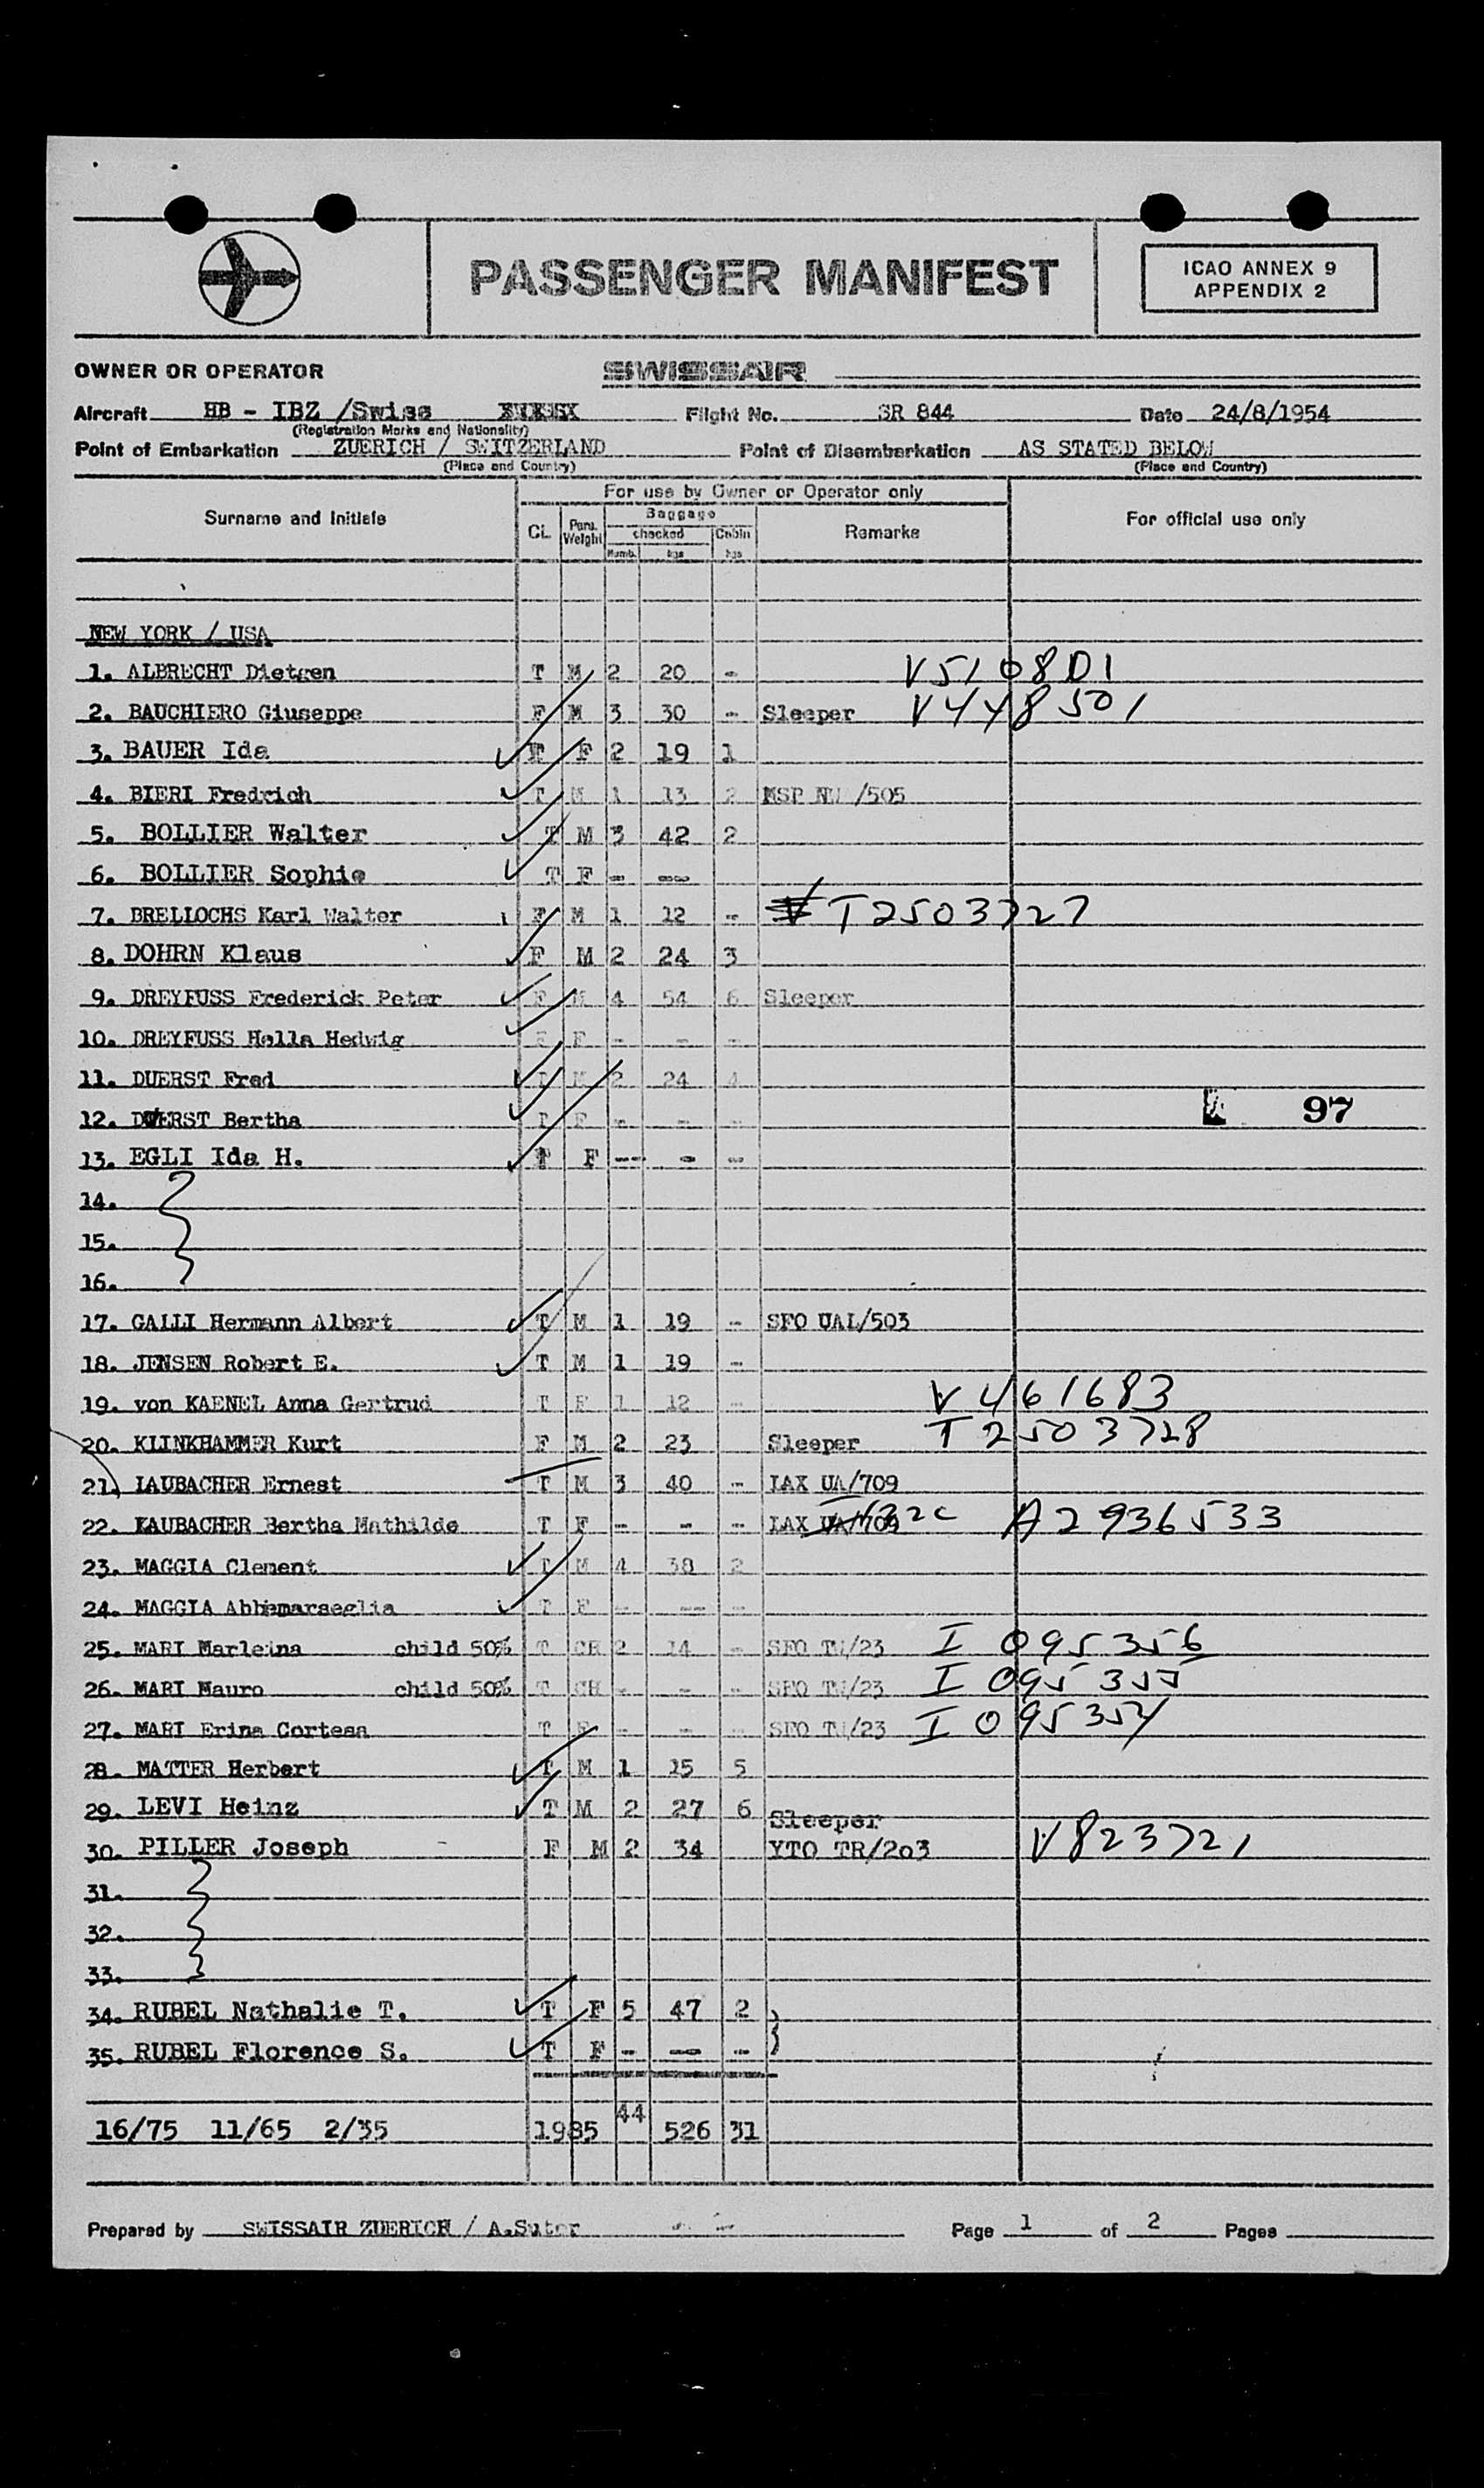 PASSENGER MANIFEST
ICAO ANNEX 9
APPENDIX 2
OWNER OR OPERATOR SWISSAIR
Aircraft HB - IBZ /Swiss Flight No. SR 844 Date 24/8/1954
(Registration Marks and Nationality)
Point of Embarkation ZUERICH / SWITZERLAND Point of Disembarkation AS STATED BELOW
(Place and Country) (Place and Country)
For use by Owner or Operator only
Surname and Initials CL. Pers. Weight Baggage checked Numb. kgs Cabin kgs Remarks For official use only
NEW YORK / USA
1. ALBRECHT Dietgen T M 2 20 - V5108D1
2. BAUCHIERO Giuseppe F M 3 30 - Sleeper V448501
3. BAUER Ida T F 2 19 1
4. BIERI Fredrich T M 1 13 2 MSP NW /505
5. BOLLIER Walter T M 3 42 2
6. BOLLIER Sophie T F - --
7. BRELLOCHS Karl Walter F M 1 12 - T2503727
8. DOHRN Klaus F M 2 24 3
9. DREYFUSS Frederick Peter F M 4 54 6 Sleeper
10. DREYFUSS Hella Hedwig F F - - -
11. DUERST Fred T M 2 24 4
12. DUERST Bertha T F - - -
13. EGLI Ida H. T F -- - -
14.
15.
16.
17. GALLI Hermann Albert T M 1 19 - SFO UAL/503
18. JENSEN Robert E. T M 1 19 -
19. von KAENEL Anna Gertrud T F 1 12 - V461683
20. KLINKHAMMER Kurt F M 2 23 Sleeper T2503728
21. LAUBACHER Ernest T M 3 40 - LAX UA/709
22. KAUBACHER Bertha Mathilde T F - - - LAX UA/709 A2936533
23. MAGGIA Clement T M 4 38 2
24. MAGGIA Abbemarseglia T F - -- -
25. MARI Marleina child 50% T CH 2 14 - SFO TW/23 I 095356
26. MARI Mauro child 50% T CH - - - SFO TW/23 I 095355
27. MARI Erina Cortesa T F - - - SFO TW/23 I 095354
28. MATTER Herbert T M 1 15 5
29. LEVI Heinz T M 2 27 6
Sleeper
30. PILLER Joseph F M 2 34 YTO TR/203 V823721
31.
32.
33.
34. RUBEL Nathalie T. T F 5 47 2
35. RUBEL Florence S. T F - -- -
16/75 11/65 2/35 1985 44 526 31
97
Prepared by SWISSAIR ZUERICH / A.Suter Page 1 of 2 Pages